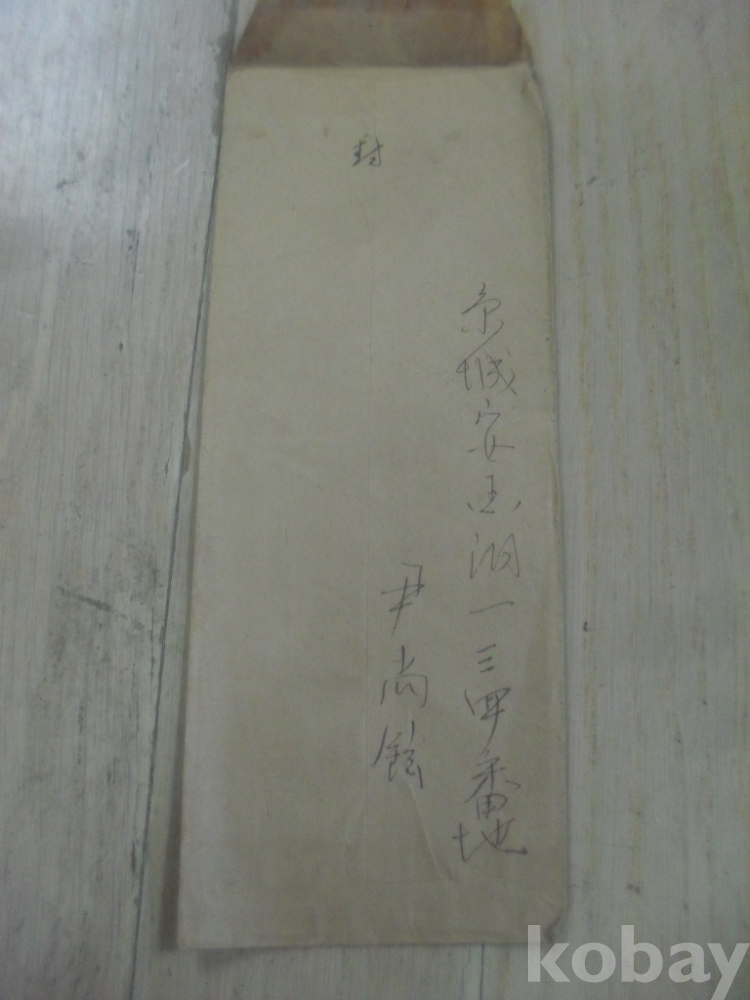 封
京城安国洞一三四番地
尹尚鉉
kobay